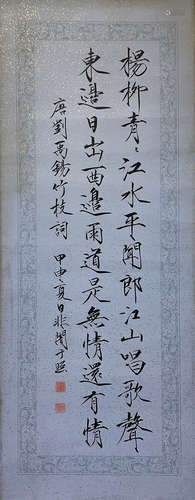 楊柳青〻江水平聞郎江山唱歌聲
東邊日出西邊雨道是無情還有情
唐劉禹錫竹枝詞
甲申夏日非闇于照